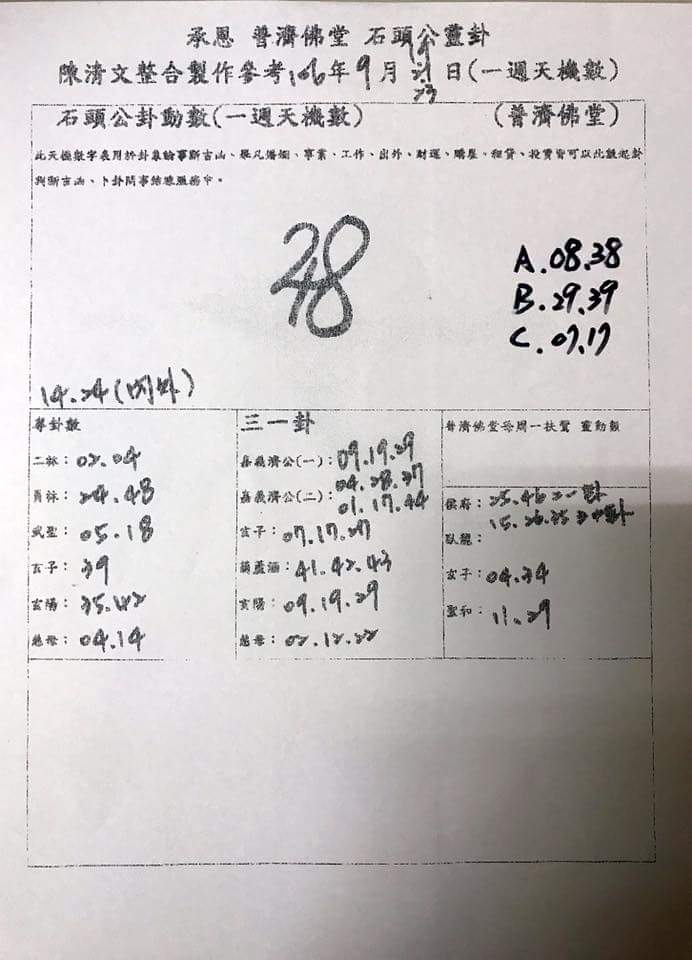 承恩 普濟佛堂 石頭公靈卦
陳清文整合製作參考106年9月19 21 23日(一週天機數)
石頭公卦動數(一週天機數) (普濟佛堂)
此天機數字表用於卦象論事斷吉凶、舉凡婚姻、事業、工作、出外、財運、購屋、租賃、投資皆可以此數起卦
判斷吉凶、卜卦問事結緣服務中。
48
A.08.38
B.29.39
C.07.17
14.24(明外)
單卦數
二林：02.04
24.48
武聖：05.18
玄子：39
玄陽：35.42
慈母：04.14
三一卦
嘉義濟公(一)：09.19.29
04.28.37
嘉義濟公(二)：01.17.44
玄子：07.17.27
葫蘆涵：41.42.43
玄陽：09.19.29
慈母：02.12.22
普濟佛堂每周一扶鸞 靈動數
侯府：25.46 二一卦
15.26.35
臥龍：
玄子：04.34
聖和：11.29